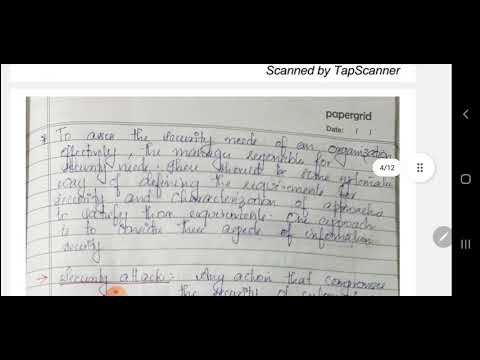 Scanned by TapScanner
papergrid
Date: / /
* To asses the security needs of an organization
effectively, the manager responsible for
security needs. there should be some systematic
way of defining the requirements for
security and characterization of approaches
to satisfy those requirements. One approach
is to consider three aspects of information
security
4/12
→ Security attack:- Any action that compromise
the security of